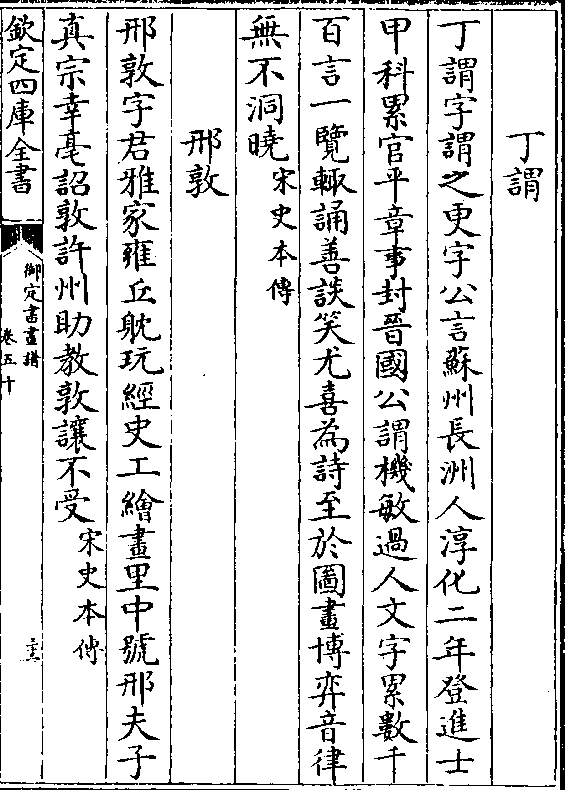 丁謂
丁謂字謂之更字公言蘇州長洲人淳化二年登進士
甲科累官平章事封晉國公謂機敏過人文字累數千
百言一覽輒誦善談笑尤喜為詩至於圖畫博弈音律
無不洞曉宋史本傳
邢敦
邢敦字君雅家雍丘耽玩經史工繪畫里中號邢夫子
真宗幸亳詔敦許州助教敦讓不受宋史本傳
欽定四庫全書
御定書畫譜
卷五十